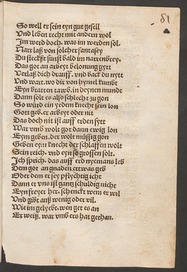 81
So well er sein eyn gut gesell
Und leben recht mit andern wol
Im werd doch, was im werden sol.
Narr laß von solcher fantasey
Du steckst sunst bald im narrenbrey.
Das got an arbeyt belonung gytt
Verlaß dich drauff, und back du nytt
Und wart, wo dir von hymel kumbt
Eyn braten tawb, in deynen mundt
Dann solt es also schlecht zu gon
So würd ein yedem knecht sin lon
Gott geb, er arbeyt oder nit
Das doch nit ist auff erden sytt
War umb wolt got dann ewig lon
Eym geben, der wolt müssig gon
Geben eym knecht der schlaffen wolt
Sein reich, und eyn so grossen solt.
Ich sprich, das auff erd nyemans leb
Dem got an gnaden, ettwas geb
Oder dem er sey pflychtig icht
Dann er uns ist gantz schuldig nicht
Eyn freyer her, schenckt wem er wil
Und gibt auß wenig oder vil.
Wie im gelyebt, wen get es an
Er weißt, war umb ers hat gethan.